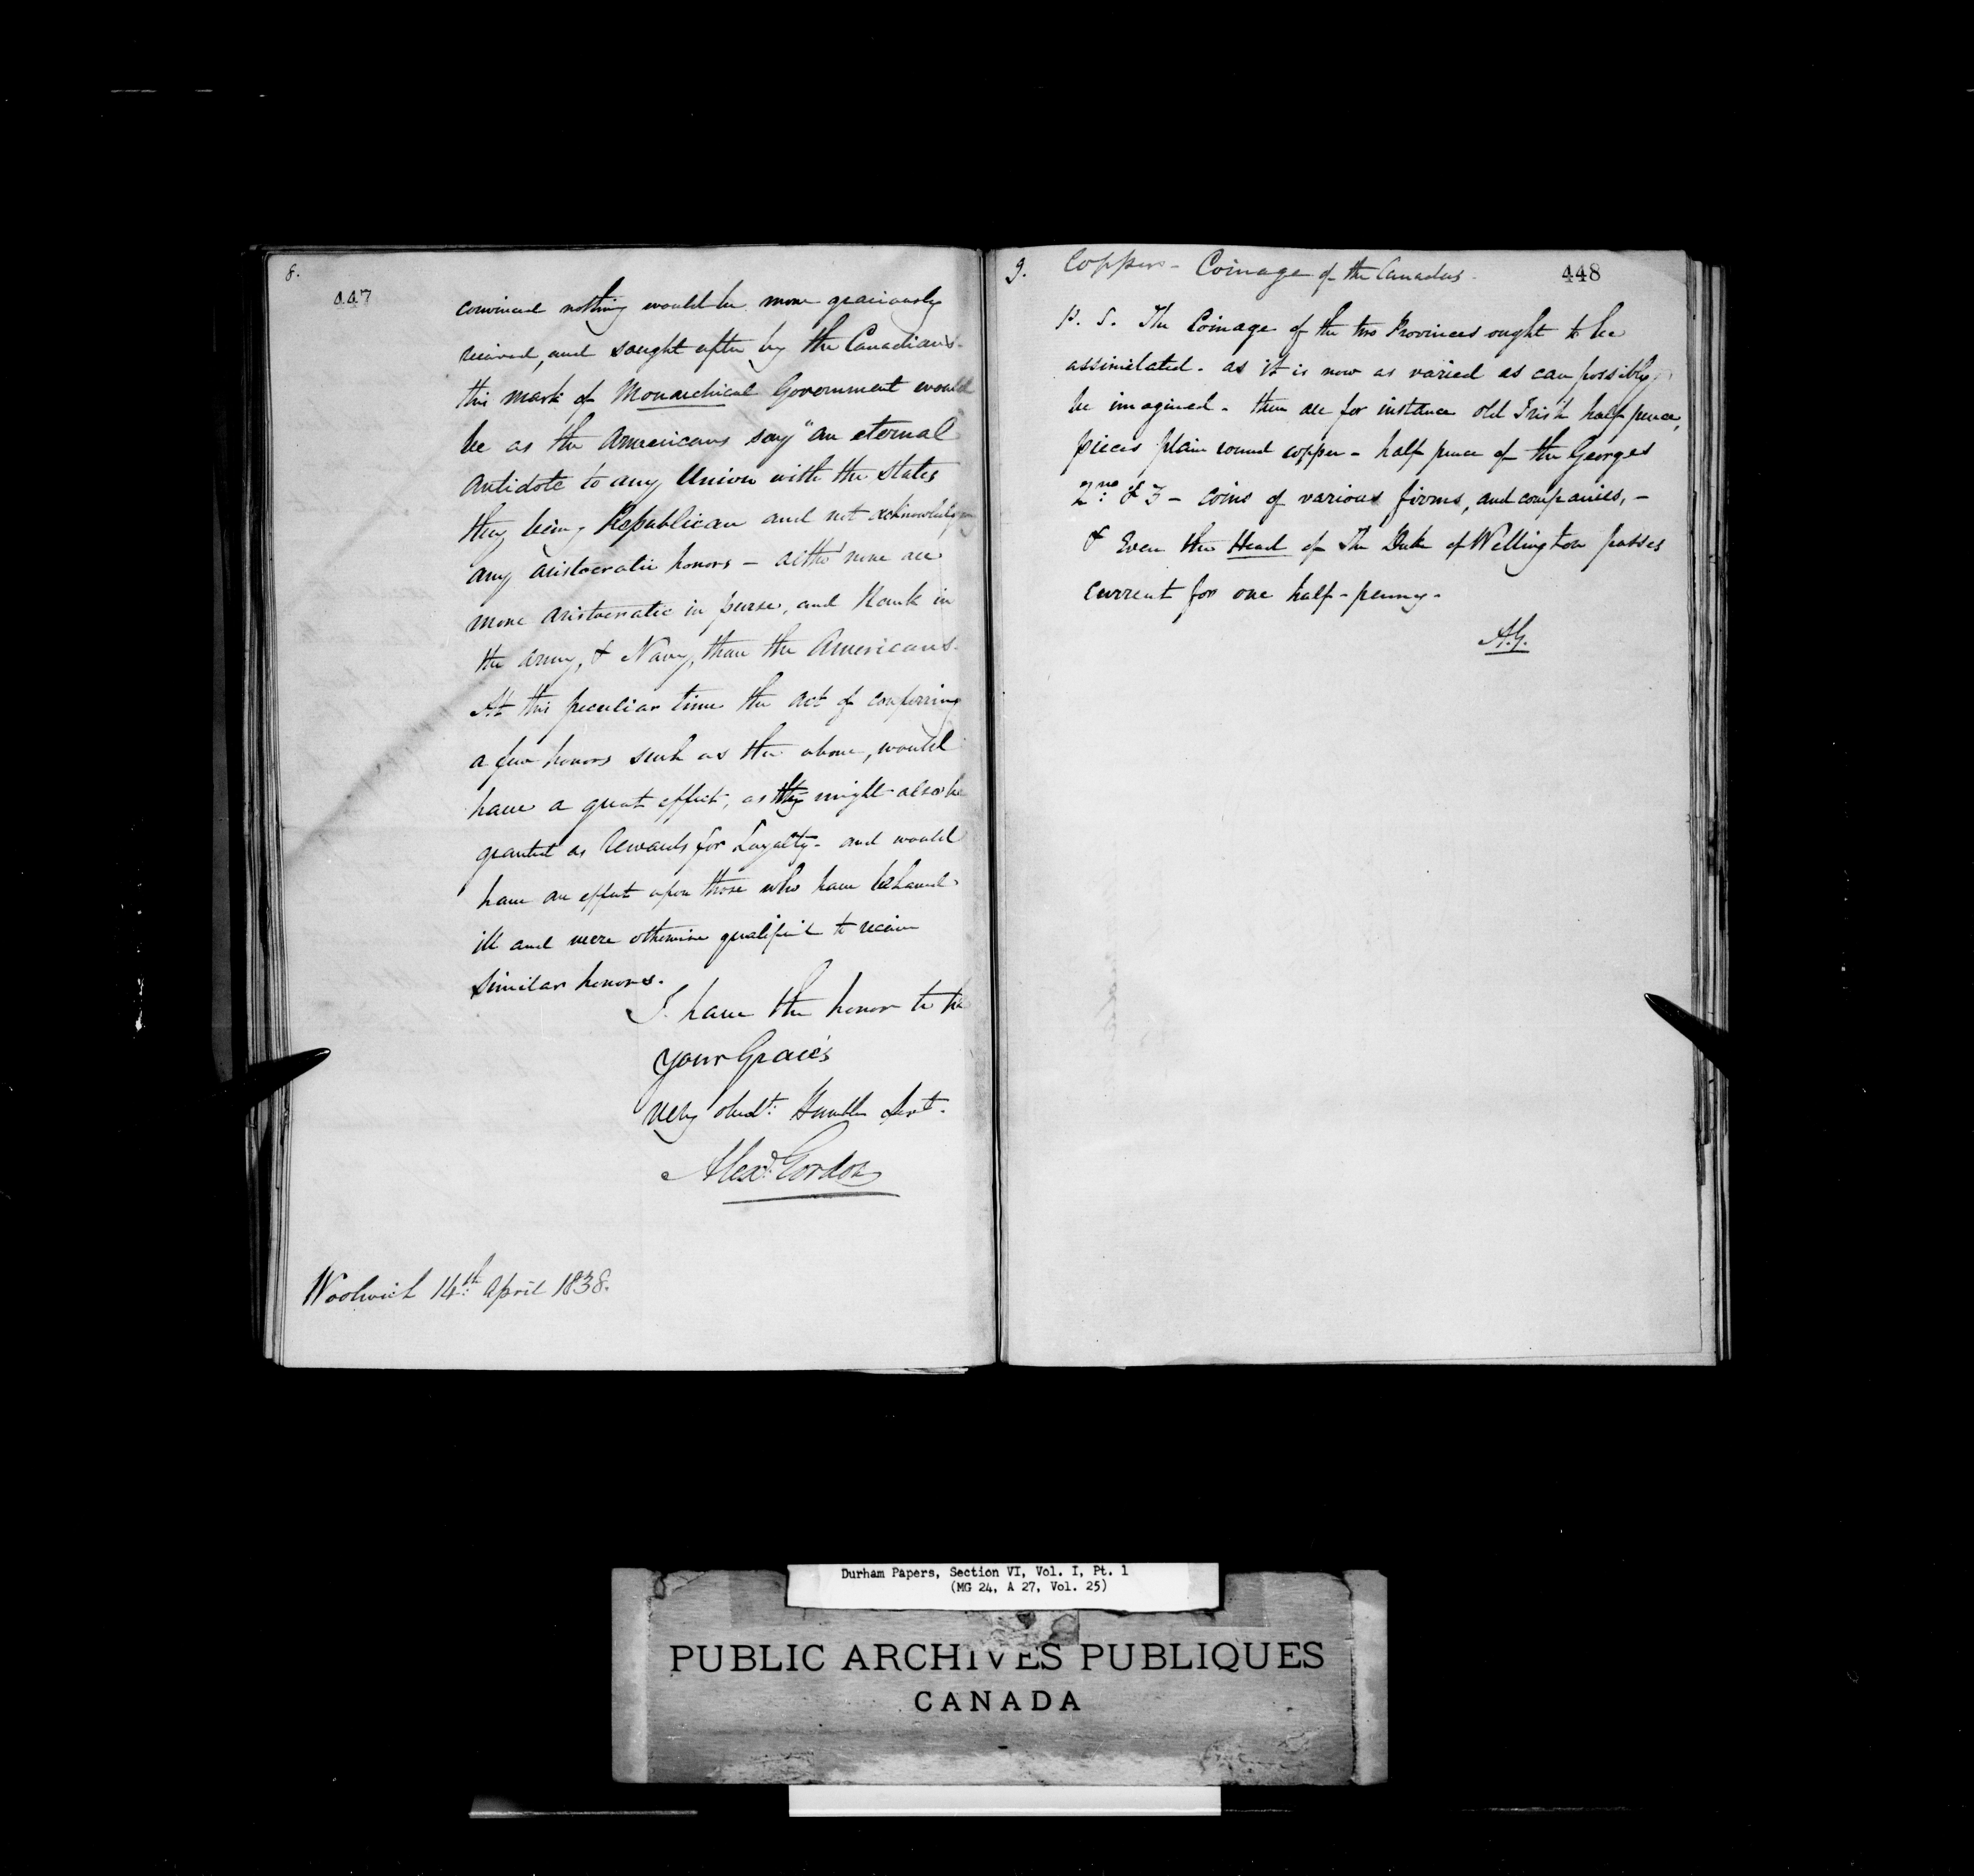 8.
447
convinced nothing would be more graciously
received, and sought after by the Canadians.
this mark of Monarchical Government would
be as the Americans say "an eternal
antidote to any Union with the States
they being Republican and not acknowledging
any aristocratic honors – altho' none are
more aristocratic in purse, and Rank in
the Army, & Navy, than the Americans.
At this peculiar time the act of conferring
a few honors such as the above, would
have a great effect, as they might also be
granted as rewards for Loyalty – and would
have an effect upon those who have behaved
ill and were otherwise qualified to receive
similar honors.
I have the honor to be
Your Grace's
very obedt: Humble Servt.
Alexr. Gordon
Woolwich 14th: April 1838.
9.
Copper – Coinage of the Canadas –
448
P. S. The Coinage of the two Provinces ought to be
assimilated. as it is now as varied as can possibly
be imagined – there are for instance old Irish half pence,
pieces plain round copper – half pence of the Georges
& 3 – coins of various firms, and companies, –
& Even the Head of The Duke of Wellington passes
current for one half-penny –
A.G.
Durham Papers, Section VI, Vol. I, Pt. 1
(MG 24, A 27, Vol. 25)
PUBLIC ARCHIVES PUBLIQUES
CANADA